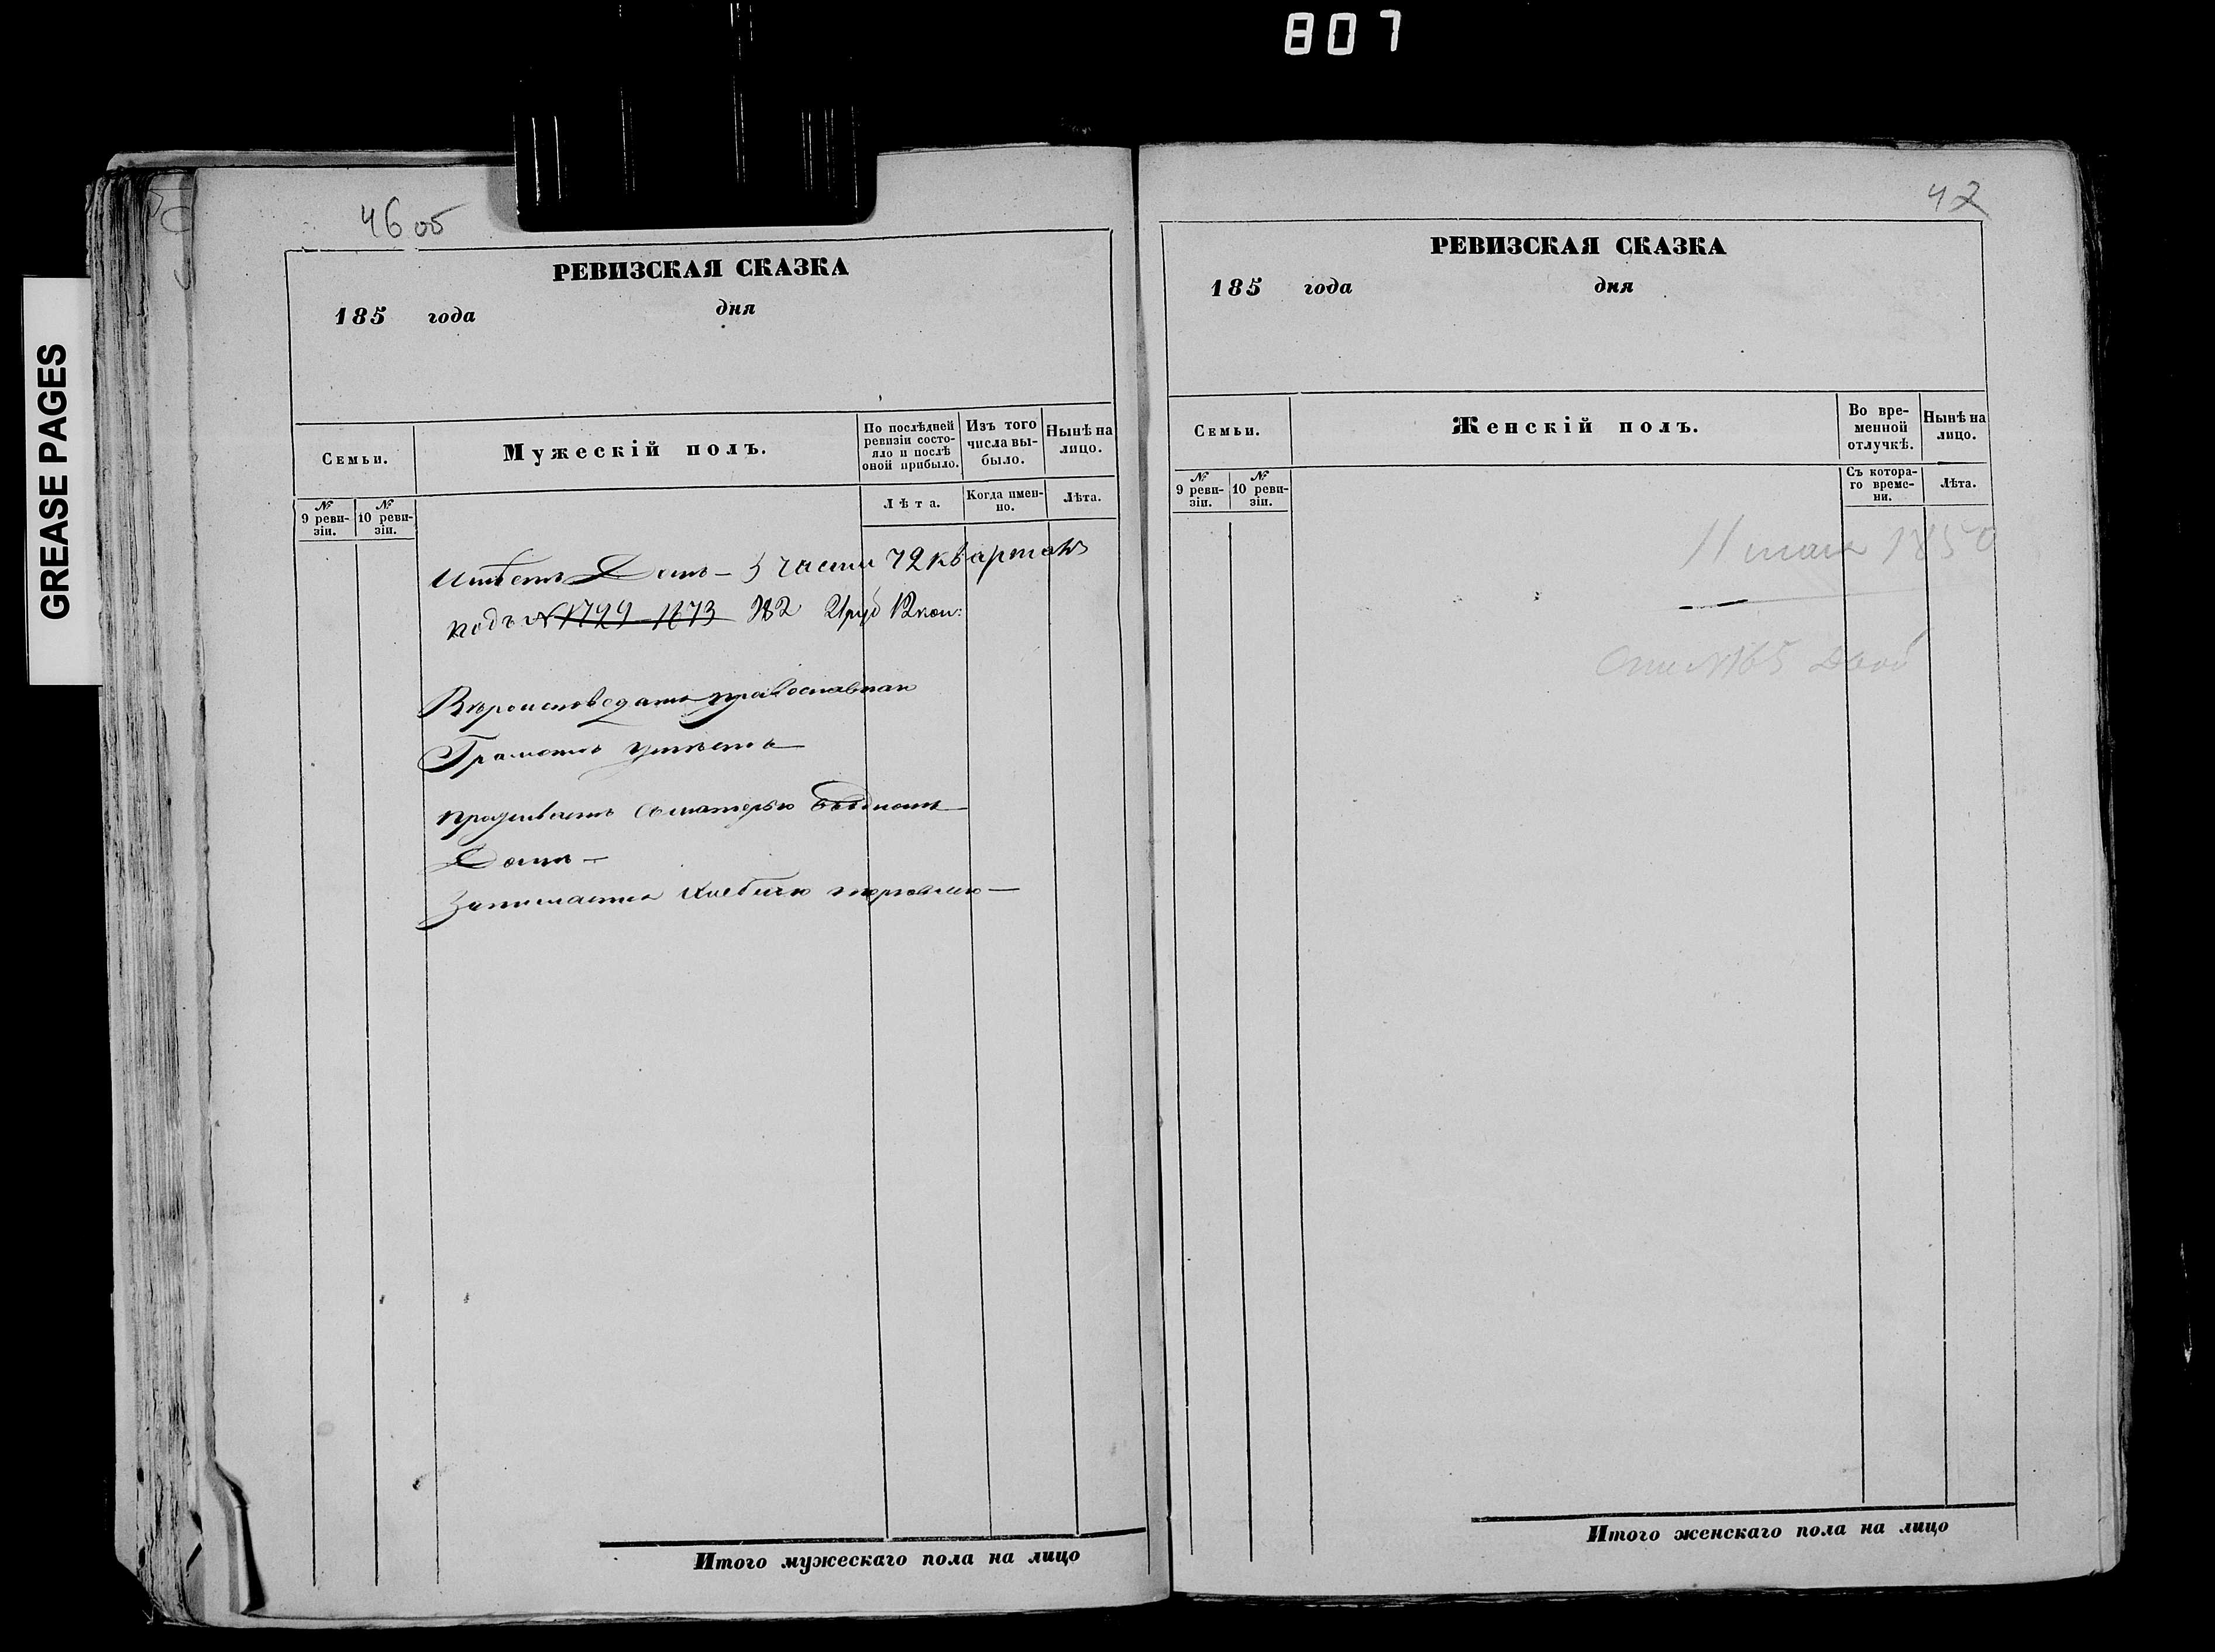 807
GREASE PAGES
46 об
РЕВИЗСКАЯ СКАЗКА
185 года дня
Семьи.
Мужескій полъ.
По послѣдней ревизіи состояло и послѣ оной прибыло.
Изъ того числа выбыло.
Нынѣ на лицо.
№ 9 ревизіи.
№ 10 ревизіи.
Лѣта.
Когда именно.
Лѣта.
Имѣетъ Домъ – 3 части 72 Квартал
подъ № 1799 – 1673 282 21 руб 12 коп:
Вѣроисповеданія православнаго
Грамотѣ умѣетъ
проживаетъ съ матерью
Домѣ –
Занимается хлебною торговлею –
Итого мужескаго пола на лицо
42
РЕВИЗСКАЯ СКАЗКА
185 года дня
Семьи.
Женскій полъ.
Во временной отлучкѣ.
Нынѣ на лицо.
№ 9 ревизіи.
№ 10 ревизіи.
Съ котораго времени.
Лѣта.
11 мая 1850
№ 165
Итого женскаго пола на лицо